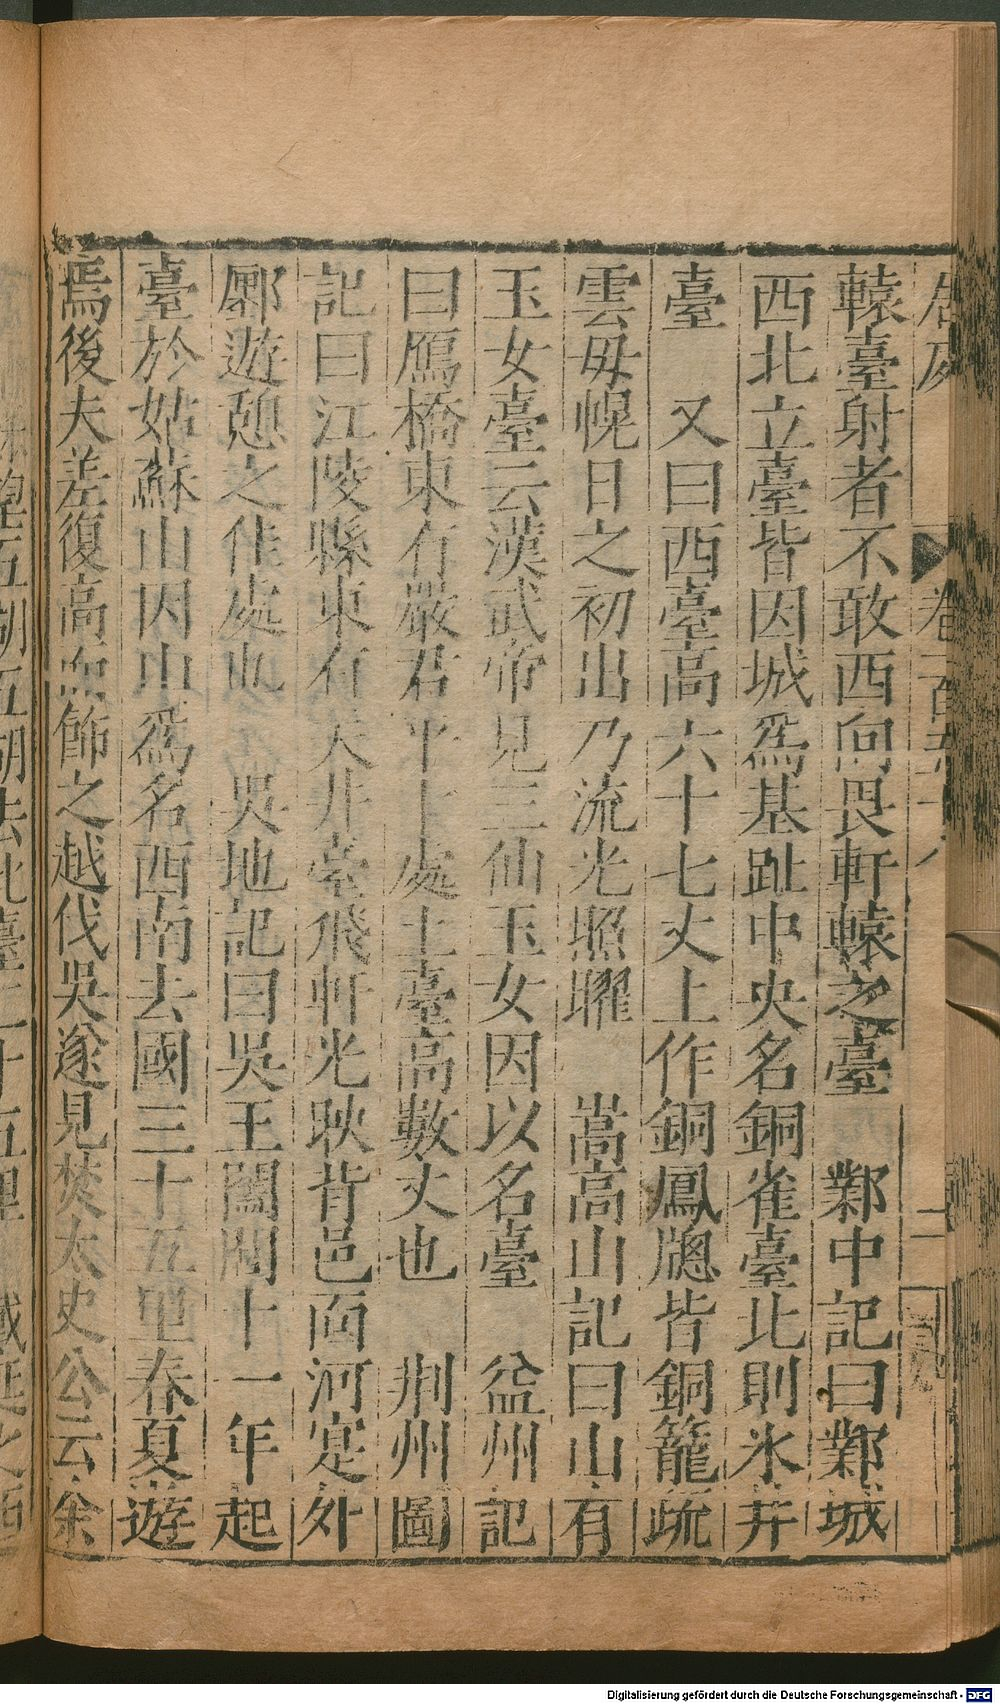 轅臺射者不敢西向畏軒轅之臺　鄴中記曰鄴城
西北立臺皆因城爲基趾中央名銅雀臺北則氷井
臺　又曰西臺高六十七丈上作銅鳳牕皆銅籠疏
雲母幌日之初出乃流光照曜　嵩高山記曰山有
玉女臺云漢武帝見三仙玉女因以名臺　益州記
曰鴈橋東有嚴君平卜處土臺高數丈也　荆州圖
記曰江陵縣東有天井臺飛軒光映背邑面河寔外
郿遊憩之佳處也　吳地記曰吳王闔閭十一年起
臺於姑蘇山因山爲名西南去國三十五里春夏遊
焉後夫差復高而飾之越伐吳遂見焚太史公云余
Digitalisierung gefördert durch die Deutsche Forschungsgemeinschaft - DFG